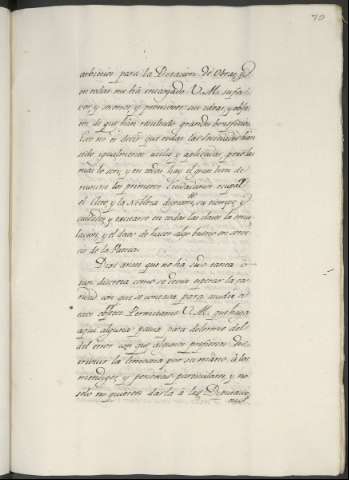 79
arbitrios para la Dotacion de Obras, y
en todas me ha encargado V.M. su fa-
vor, y socorro, y promover sus ideas, y
de que han resultado grandes beneficios.
Esto no es decir que todas las Sociedades han
sido igualmente utiles y aplicadas, pero las
mas lo son, y en todas hay el gran bien de
reunirse los primeros Ciudadanos
el Clero, y la Nobleza su tiempo, y
caudales, y excitarse en todas las clases la emu-
lacion, y el deseo de hacer algo bueno en servi-
cio de la Patria.
Dixe antes que no ha sido tanta
tan discreta como se devia esperar la ca-
ridad con que se contava para ayudar a
este objeto. Permitame V.M. que haga
aqui alguna pausa para dolerme del
del error con que algunos prefieren dis-
tribuir la limosna por su mano à los
mendigos, y personas particulares, y no
solo no quieren darla à las Diputacio-
nes